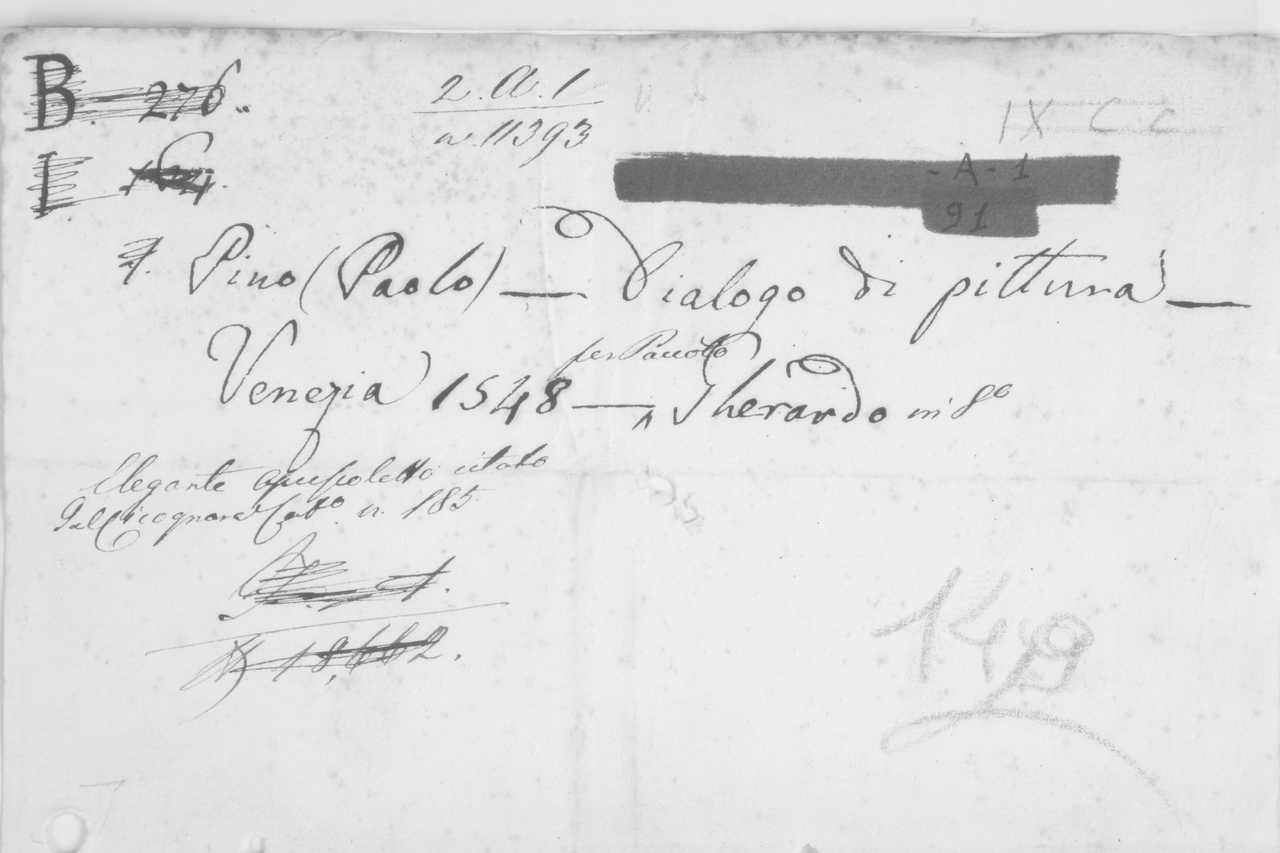 B. — 276..
2. A. 1
n. 11393
IX C C
- A - 1
91
I 164.
Pino (Paolo) — Dialogo di pittura —
Venezia 1548 — per Pauolo Gherardo in 8º
Elegante opuscoletto citato
dal Cicognara Catº. n. 185
18,662.
142